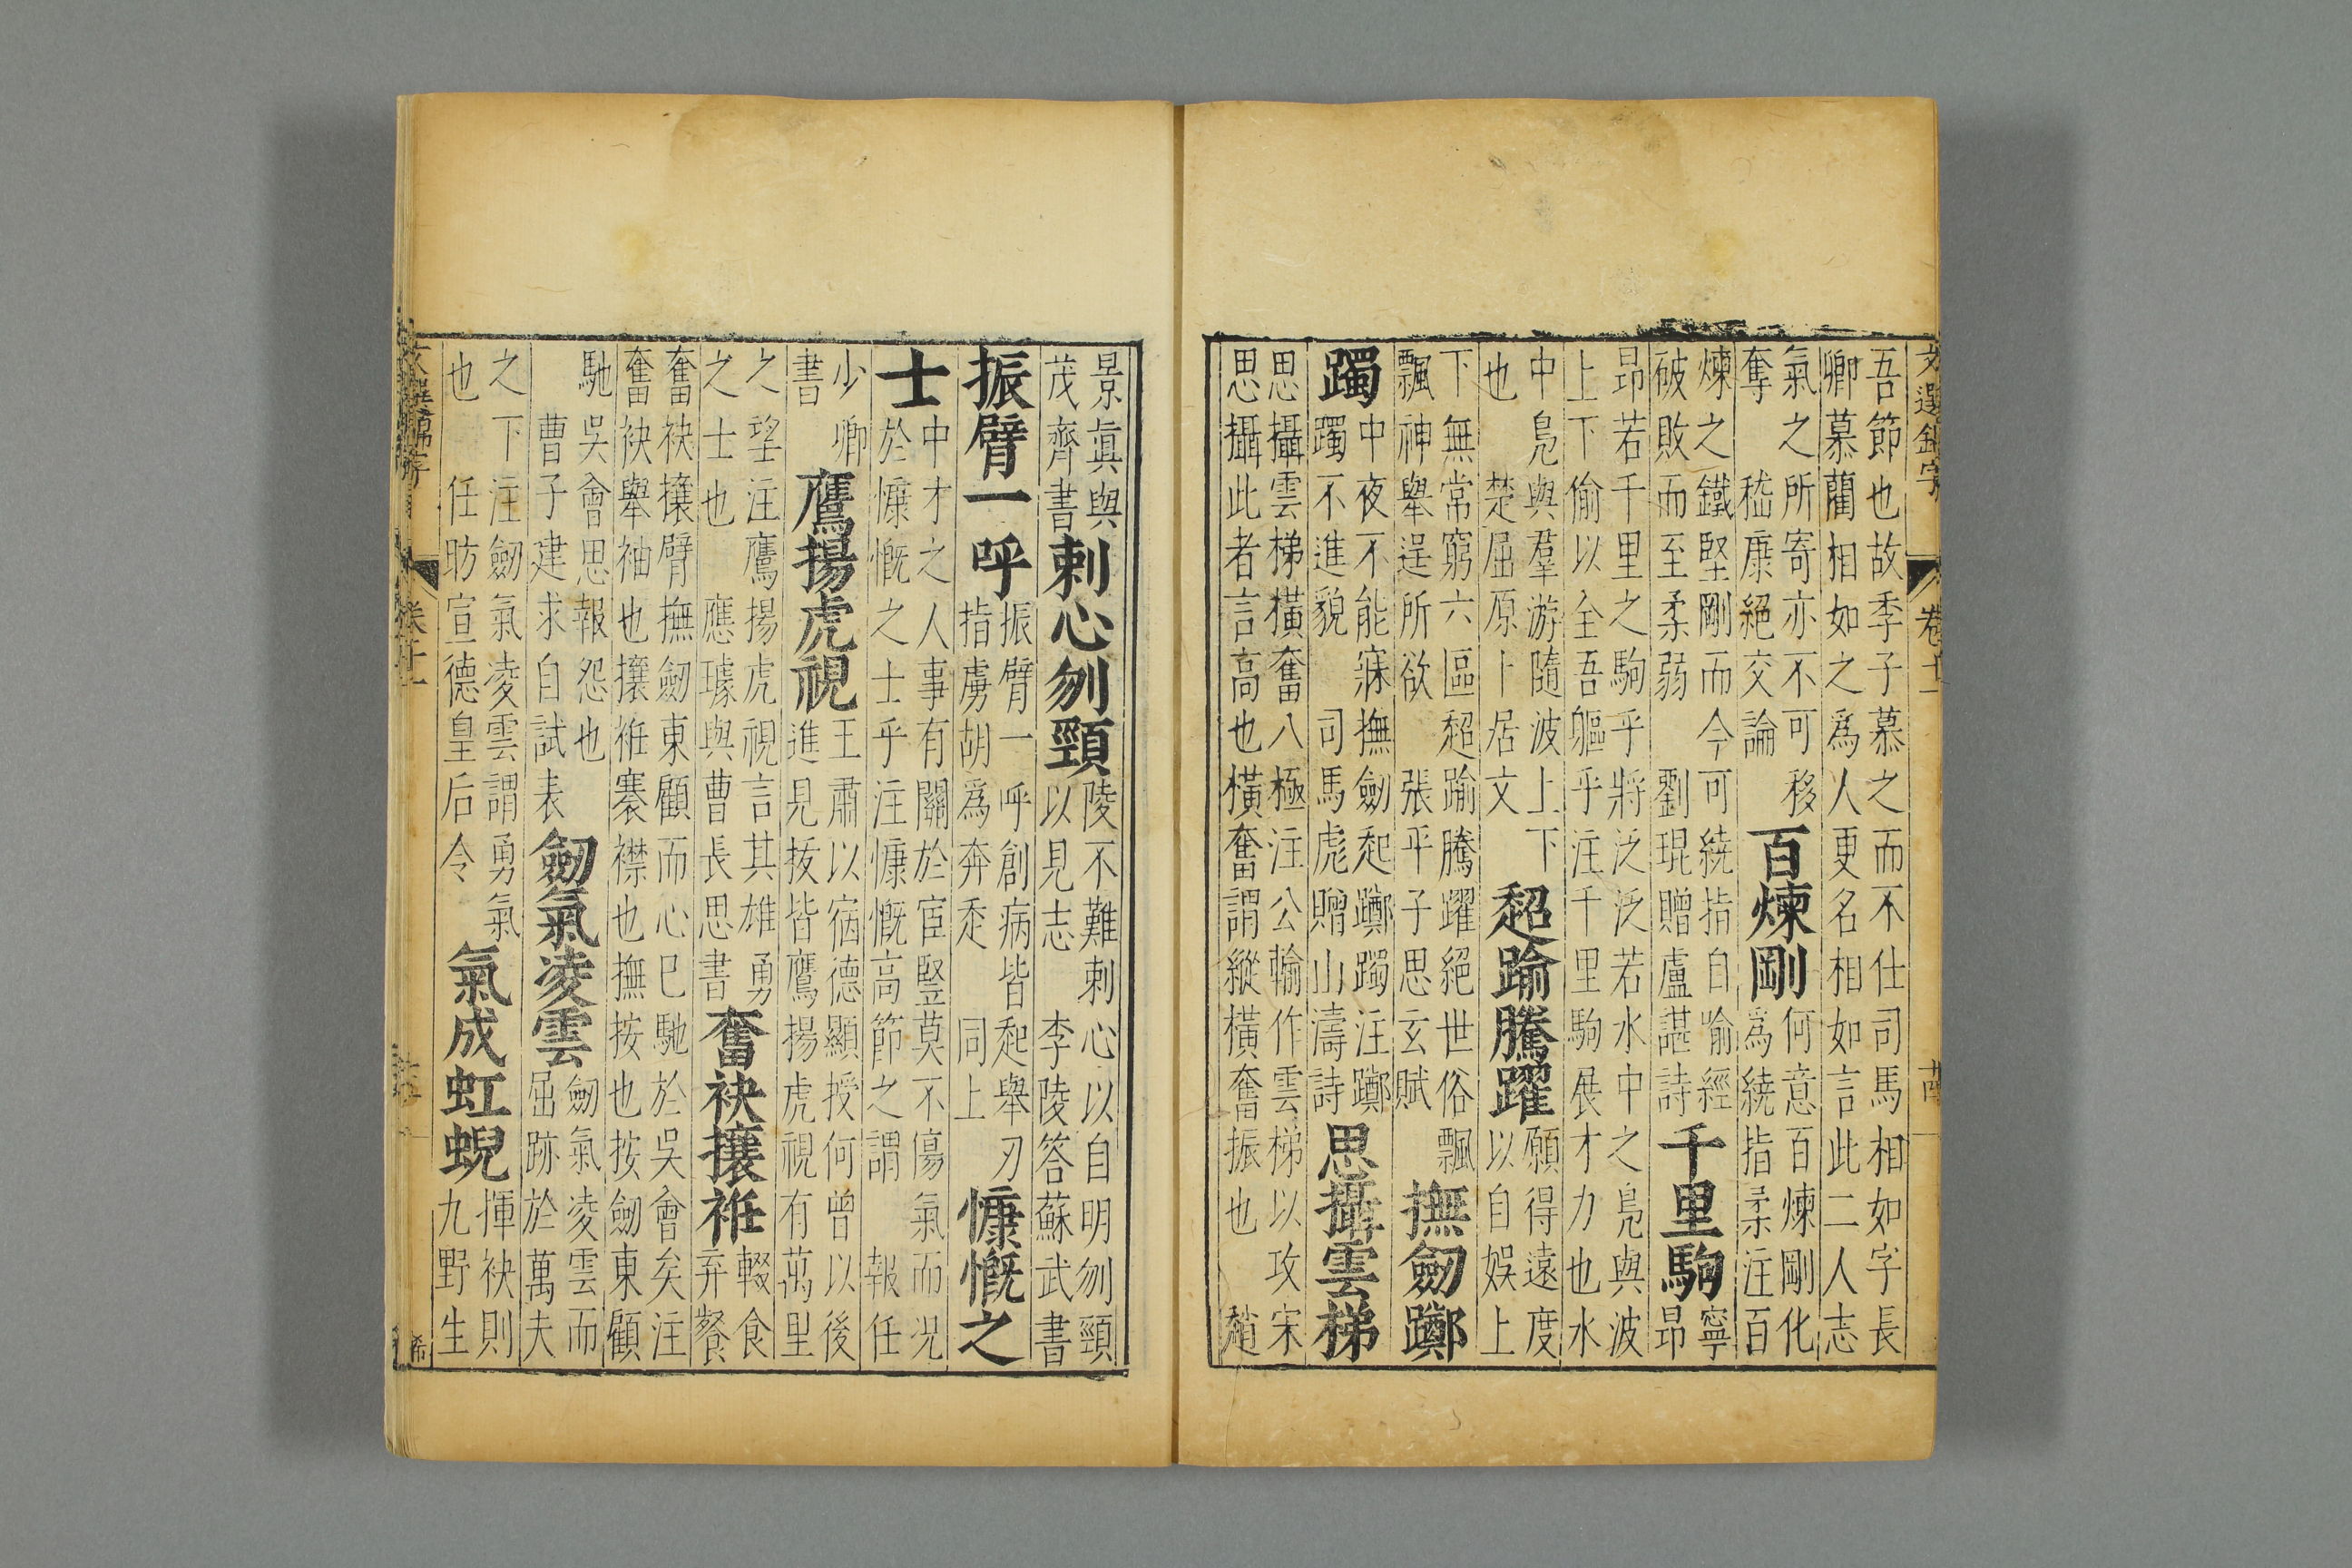 文選錦字
卷十一
廿
吾節也故季子慕之而不仕司馬相如字長
卿慕藺相如之爲人更名相如言此二人志
氣之所寄亦不可移
奪　嵇康絕交論
百煉剛
何意百煉剛化
爲繞指柔注百
煉之鐵堅剛而今可繞指自喻經
破敗而至柔弱　劉琨贈盧諶詩
千里駒
寧
昂
昂若千里之駒乎將泛泛若水中之鳧與波
上下偷以全吾軀乎注千里駒展才力也水
中鳧與羣游隨波上下
也　楚屈原卜居文
超踰騰躍
願得遠度
以自娛上
下無常窮六區超踰騰躍絕世俗飄
飄神舉逞所欲　張平子思玄賦
撫劒躑
躅
中夜不能寐撫劒起躑躅注躑
躅不進貌　司馬虎贈山濤詩
思攝雲梯
思攝雲梯橫奮八極注公輸作雲梯以攻宋
思攝此者言高也橫奮謂縱橫奮振也　趙
景眞與
茂齊書
刺心刎頸
陵不難刺心以自明刎頸
以見志　李陵答蘇武書
振臂一呼
振臂一呼創病皆起舉刃
指虜胡爲奔走　同上
慷慨之
士
中才之人事有關於宦豎莫不傷氣而況
於慷慨之士乎注慷慨高節之謂　報任
少卿
書
鷹揚虎視
王肅以宿德顯授何曾以後
進見拔皆鷹揚虎視有萬里
之望注鷹揚虎視言其雄勇
之士也　應璩與曹長思書
奮袂攘袵
輟食
弃餐
奮袂攘臂撫劒東顧而心已馳於吳會矣注
奮袂舉袖也攘袵褰襟也撫按也按劒東顧
馳吳會思報怨也
曹子建求自試表
劒氣凌雲
劒氣凌雲而
屈跡於萬夫
之下注劒氣凌雲謂勇氣
也　任昉宣德皇后令
氣成虹蜺
揮袂則
九野生
卷十一
希